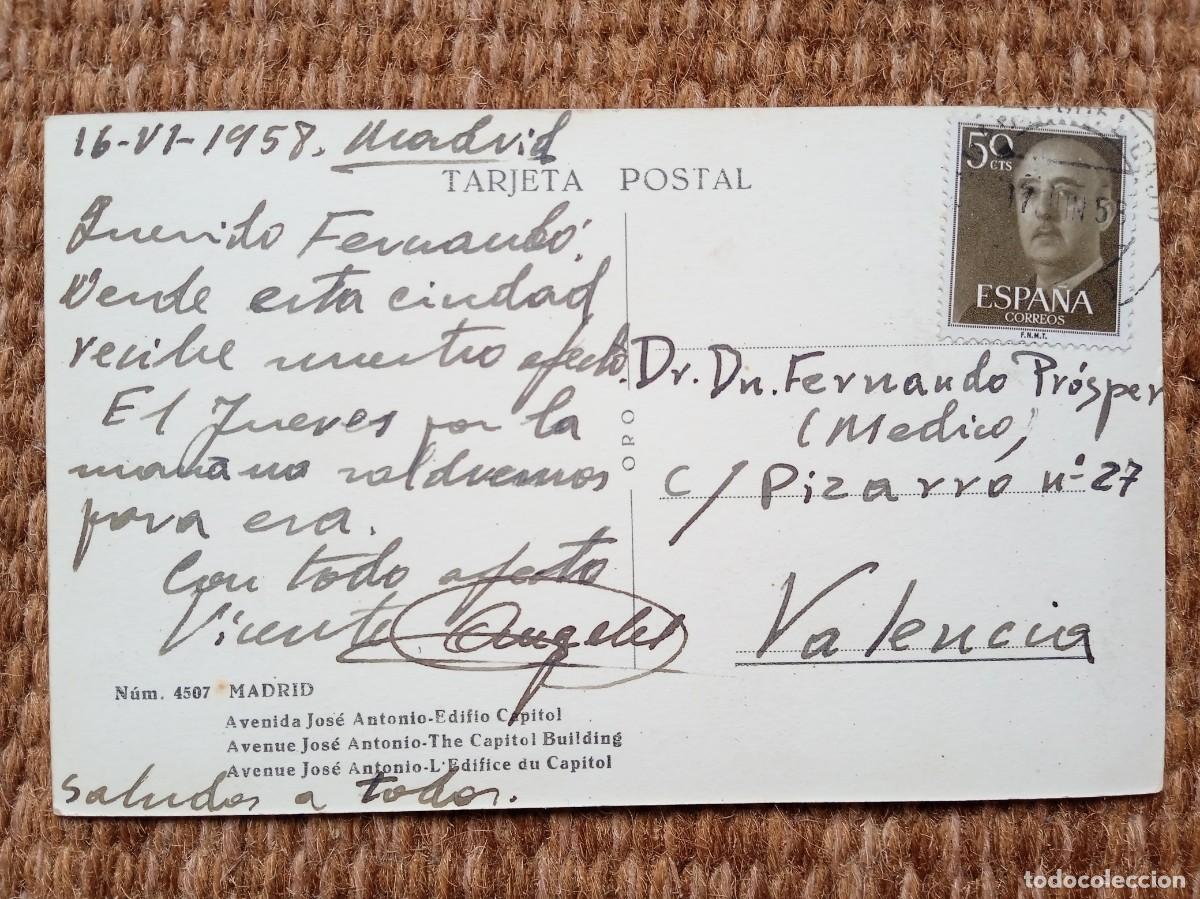 16-VI-1958. Madrid
TARJETA POSTAL
Querido Fernando,
Dende esta ciudad
recibe nuestro afecto.
El Jueves por la
mañana saldremos
para esa.
Con todo afecto
Vicente Angeles
Núm. 4507 MADRID
Avenida José Antonio-Edifio Capitol
Avenue José Antonio-The Capitol Building
Avenue José Antonio-L'Edifice du Capitol
saludos a todos.
ORO
50 CTS
17 JUN 58
ESPAÑA
CORREOS
F.N.M.T.
Dr. Dn. Fernando Prósper
(Medico)
c/ Pizarro nº 27
Valencia
todocoleccion